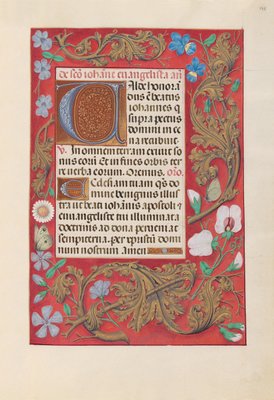 de scō iohāne euangelista añ
Alde honorā
dus ē beatus
iohannes q
supra pectus
domini in ce
na recubuit
V. In omnem terram exiuit so
nus eorū Et in fines orbis ter
re uerba eorum. Oremus. oro.
Ecclesiam tuam qs do
mine benignus illus
tra ut beati iohānis apostoli &
euangeliste tui illuminata
doctrinis ad dona perueniat
sempiterna. per xpistū domi
num nostrum amen